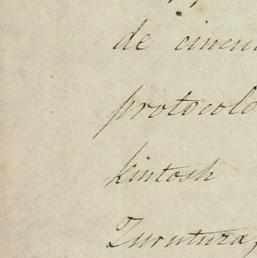 de cincu
protocolo
kintosh
Zurutuza,